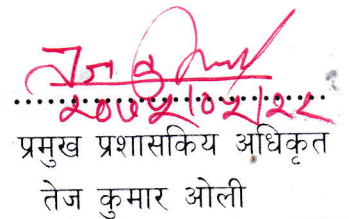 तेज कु
२०७५|०५|२२
प्रमुख प्रशासकिय अधिकृत
तेज कुमार ओली